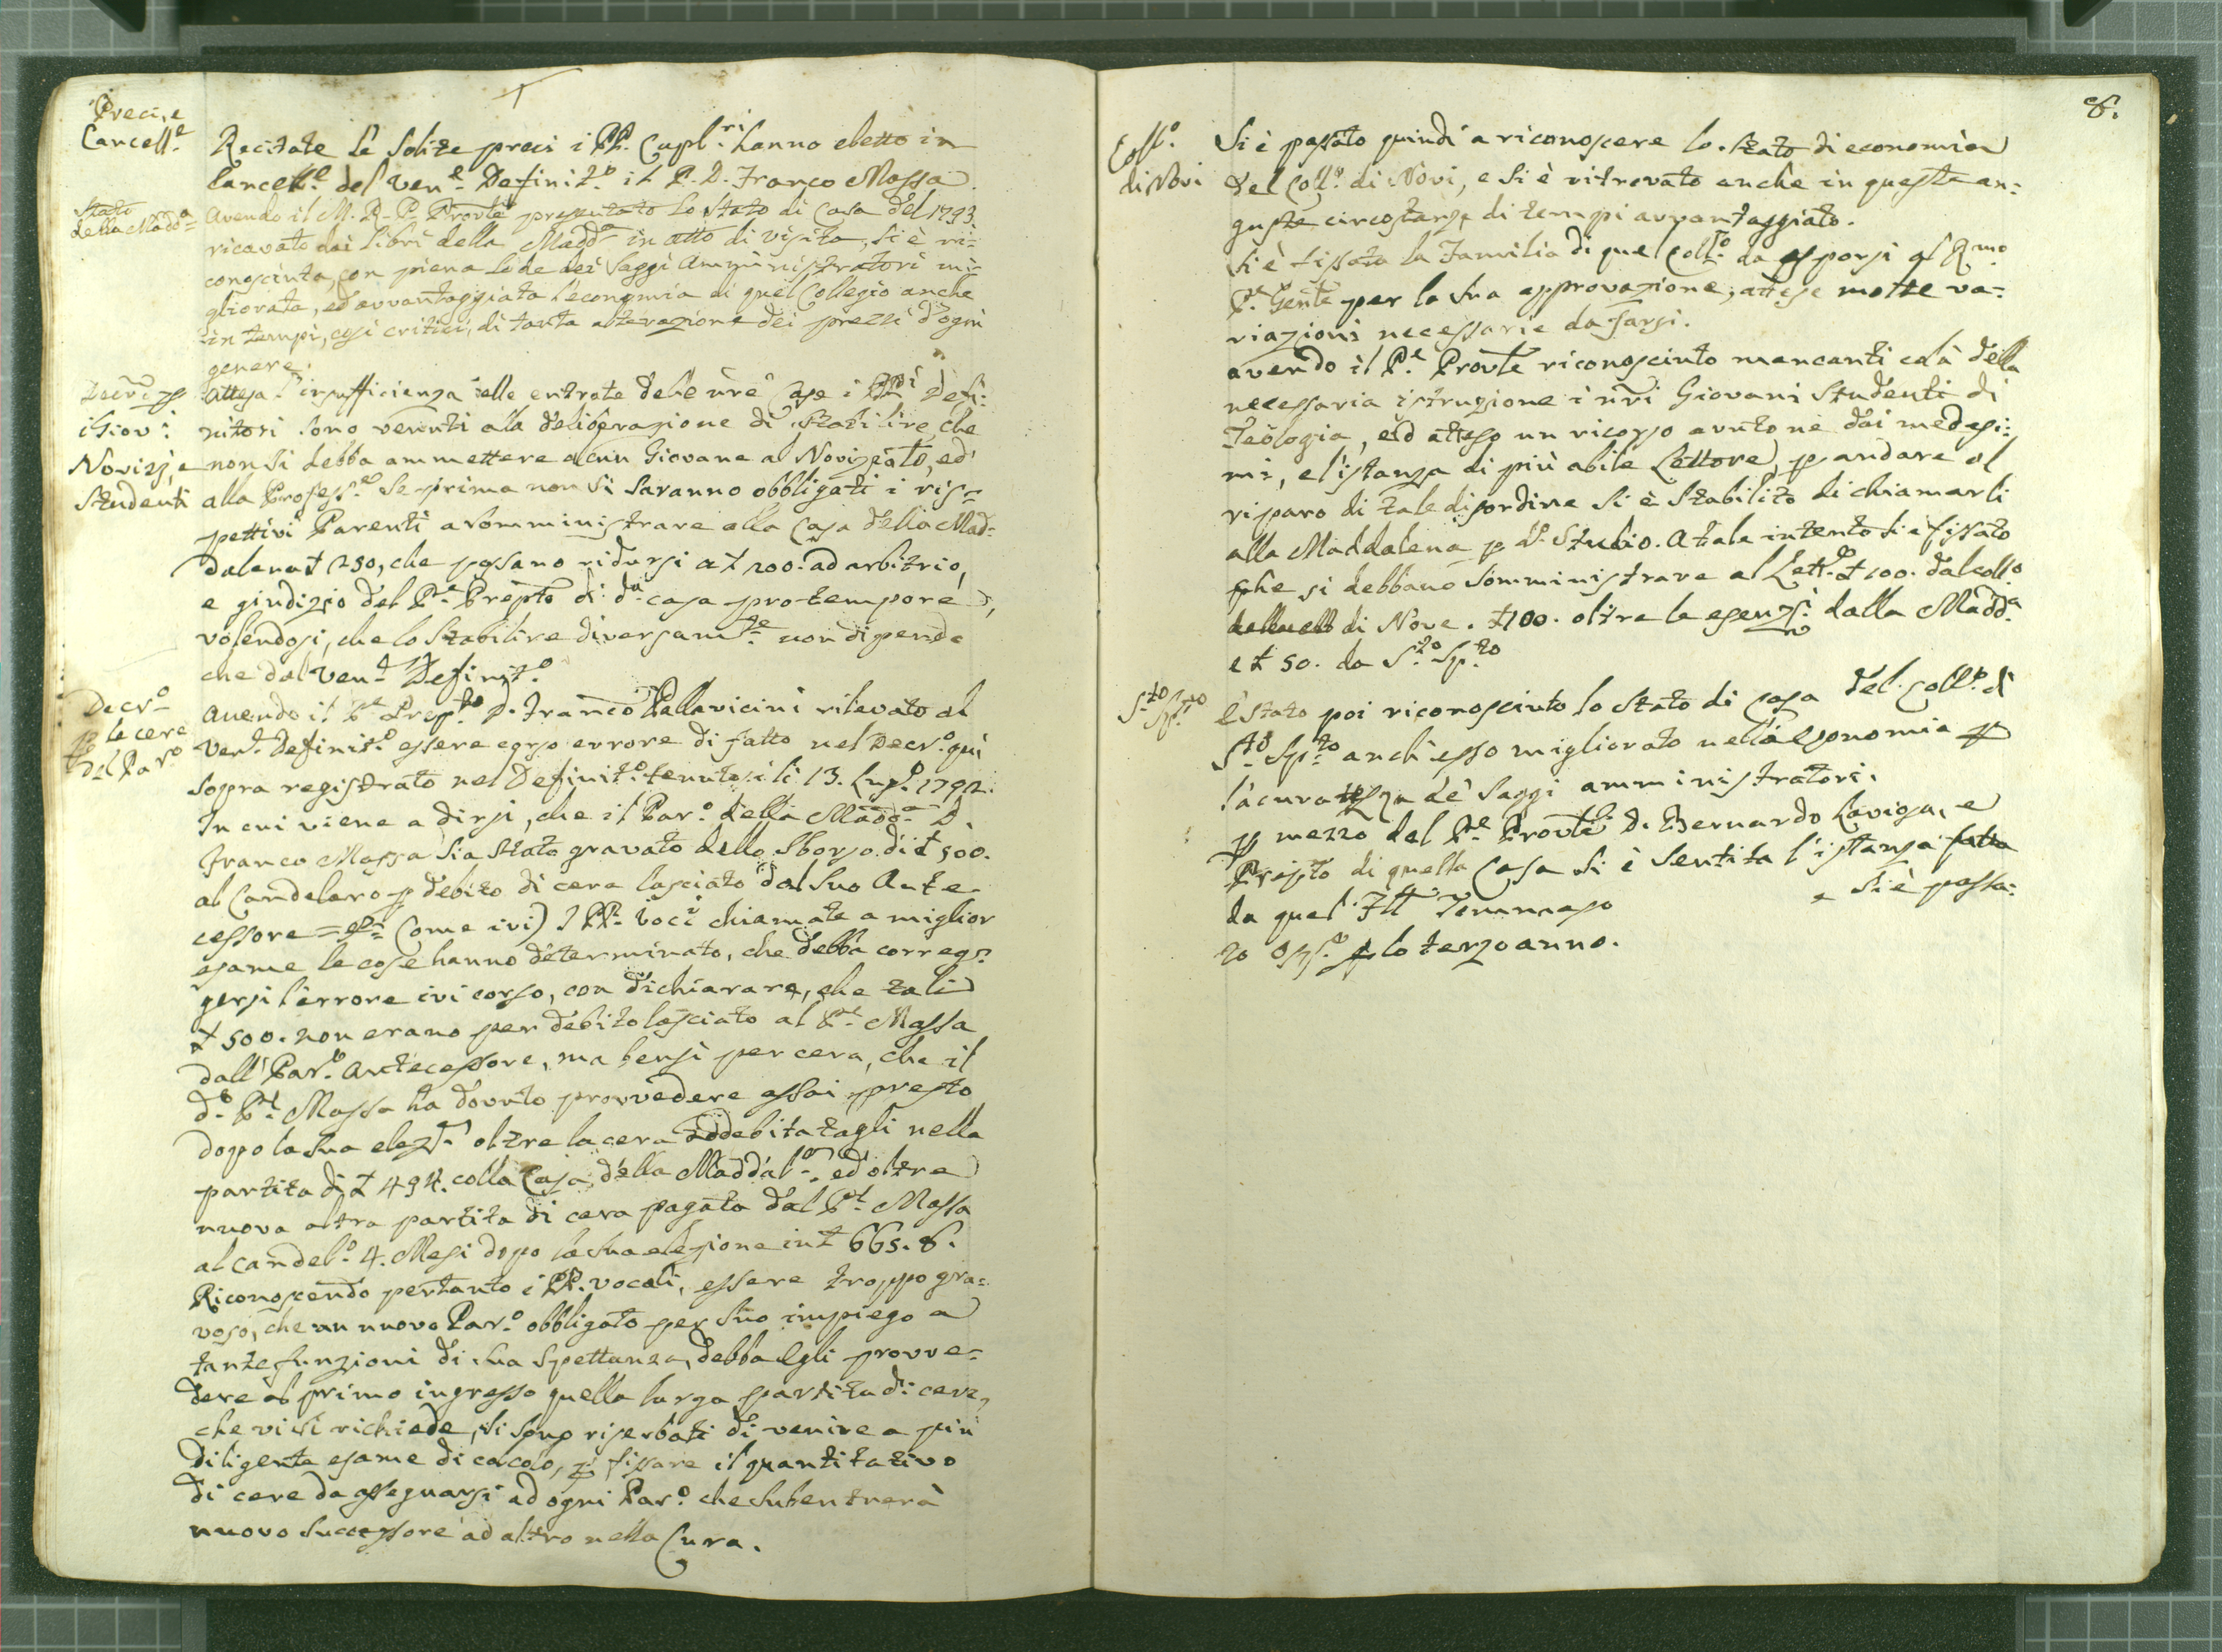 Preci, e
Cancell.e
Recitate le Solite preci i PP. Capl.ri hanno eletto in
Cancell.e del Ven.e Definit.o il P. D. Franco Massa.
Stato
della Madd.a
Avendo il M. R. P. Provle presentato lo Stato di Casa del 1793.
ricavato dai libri della Madd.a in atto di visita, si è ri=
conosciuta, con piena lode dei Saggi Amministratori mi=
gliorata, ed avvantaggiata l'economia di quel Collegio anche
in tempi, così critici, di tanta alterazione dei prezzi d'ogni
genere.
Decri p
i Giov:i
Novizj, e
Studenti
Attesa l'insufficienza delle entrate delle nre Case i PP.di Defi:
nitori sono venuti alla deliberazione di stabilire, che
non si debba ammettere alcun Giovane al Noviziato, ed
alla Profess.e se prima non si saranno obbligati i ris=
pettivi Parenti a somministrare alla Casa della Mad=
dalena £ 250, che possano ridursi a £ 200. ad arbitrio,
e giudizio del P.re Prepto di d.a casa pro tempore,
volendosi, che lo Stabilire diversam.te non dipenda
che dal Ven.e Definit.o
Decr.o
p le cere
del Par.o
Avendo il P.e Prep.to D. Franco Pallavicini rilevato al
Ven.e Definit.o essere corso errore di fatto nel Decr.o qui
sopra registrato nel Definit.o tenutosi li 13. Lug.o 1792.
In cui viene a dirsi, che il Par.o della Madd.a D.
Franco Massa sia stato gravato dello Sborso di £ 500.
al Candelaro p debito di cera lasciato dal suo Ante=
cessore = &.a (Come ivi) I PP. Voci chiamate a miglior
esame le cose hanno determinato, che debba correg=
gersi l'errore ivi corso, con dichiarare, che tali
£ 500. non erano per debito lasciato al P.e Massa
dall' Par.o Antecessore, ma bensì per cera, che il
d.o P.e Massa ha dovuto provvedere assai presto
dopo la sua elez.e oltre la cera addebitatagli nella
partita di £ 494. colla Casa della Maddal.a, ed oltre
nuova altra partita di cera pagata dal P.e Massa
al candel.o 4. Mesi dopo la sua elezione in £ 665.8.
Riconoscendo pertanto i PP. vocali, essere troppo gra=
voso, che un nuovo Par.o obbligato per suo impiego a
tante funzioni di sua Spettanza, debba Egli provve=
dere al primo ingresso quella larga partita di cera,
che vi si richiede, si sono riserbati di venire a più
diligente esame di calcolo, p fissare il quantitativo
di cere da assegnarsi ad ogni Par.o che subentrerà
nuovo Successore ad altro nella Cura.
8.
Coll.o
di Novi
Si è passato quindi a riconoscere lo stato di economia
del Coll.o di Novi, e si è ritrovato anche in queste an:
guste circostanze di tempi avvantaggiato.
Si è fissata la Familia di quel Coll.o da esporsi al R.mo
P.re Genle per la sua approvazione, attese molte va=
riazioni necessarie da farsi.
Avendo il P.e Provle riconosciuto mancanti colà della
necessaria istruzione i nri Giovani Studenti di
Teologia, ed atteso un ricorso avutone dai medesi:
mi, e l'istanza di più abile Lettore, p andare al
riparo di tale disordine si è Stabilito di chiamarli
alla Maddalena p lo Studio. A tale intento si è fissato
che si debbano somministrare al Lett.e £ 100. dal coll.o
di Nove. £ 100. oltre le esenz.i dalla Madd.a
e £ 50. da S.to Sp.to
S.to Sp.to
È stato poi riconosciuto lo stato di casa del Coll.o di
S.to Sp.to anch'esso migliorato nell'Economia p
l'accuratezza de' Saggi amministratori.
p mezzo del P.e Provle D. Bernardo Laviosa, e
Prepto di quella Casa si è sentita l'istanza fatta
da quel Tommaso e si è passa:
to p lo terzo anno.